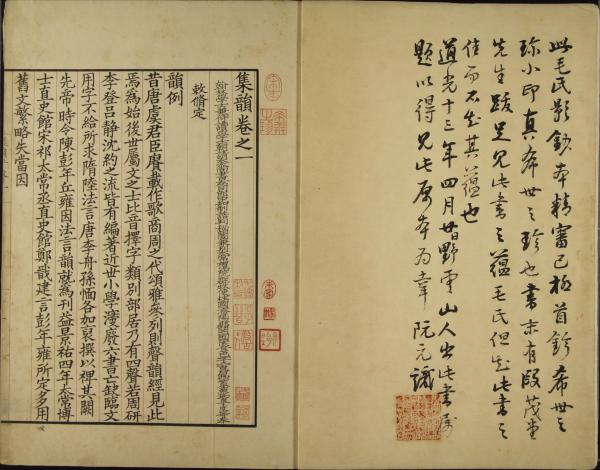 此毛氏影鈔本精審已極首鈐希世之
珍小印真希世之珍也書末有段茂堂
先生跋足見此書之蘊毛氏但知此書之
佳而不知其蘊也
道光十三年四月廿日野雲山人出此書屬
題以得見此原本為幸 阮元識
集韻卷之一
翰林學士兼侍讀學士
敕脩定
韻例
昔唐虞君臣賡載作歌商周之代頌雅參列則聲韻經見此
焉為始後世屬文之士比音擇字類別部居乃有四聲若周研
李登呂靜沈約之流皆有編著近世小學寖廢六書亡缺臨文
用字不給所求隋陸法言唐李舟孫愐各加裒撰以裨其闕
先帝時令陳彭年丘雍因法言韻就為刊益景祐四年太常博
士直史館宋祁太常丞直史館鄭戩建言彭年雍所定多用
舊文繁略失當因